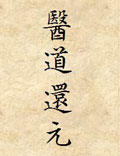 醫道還元